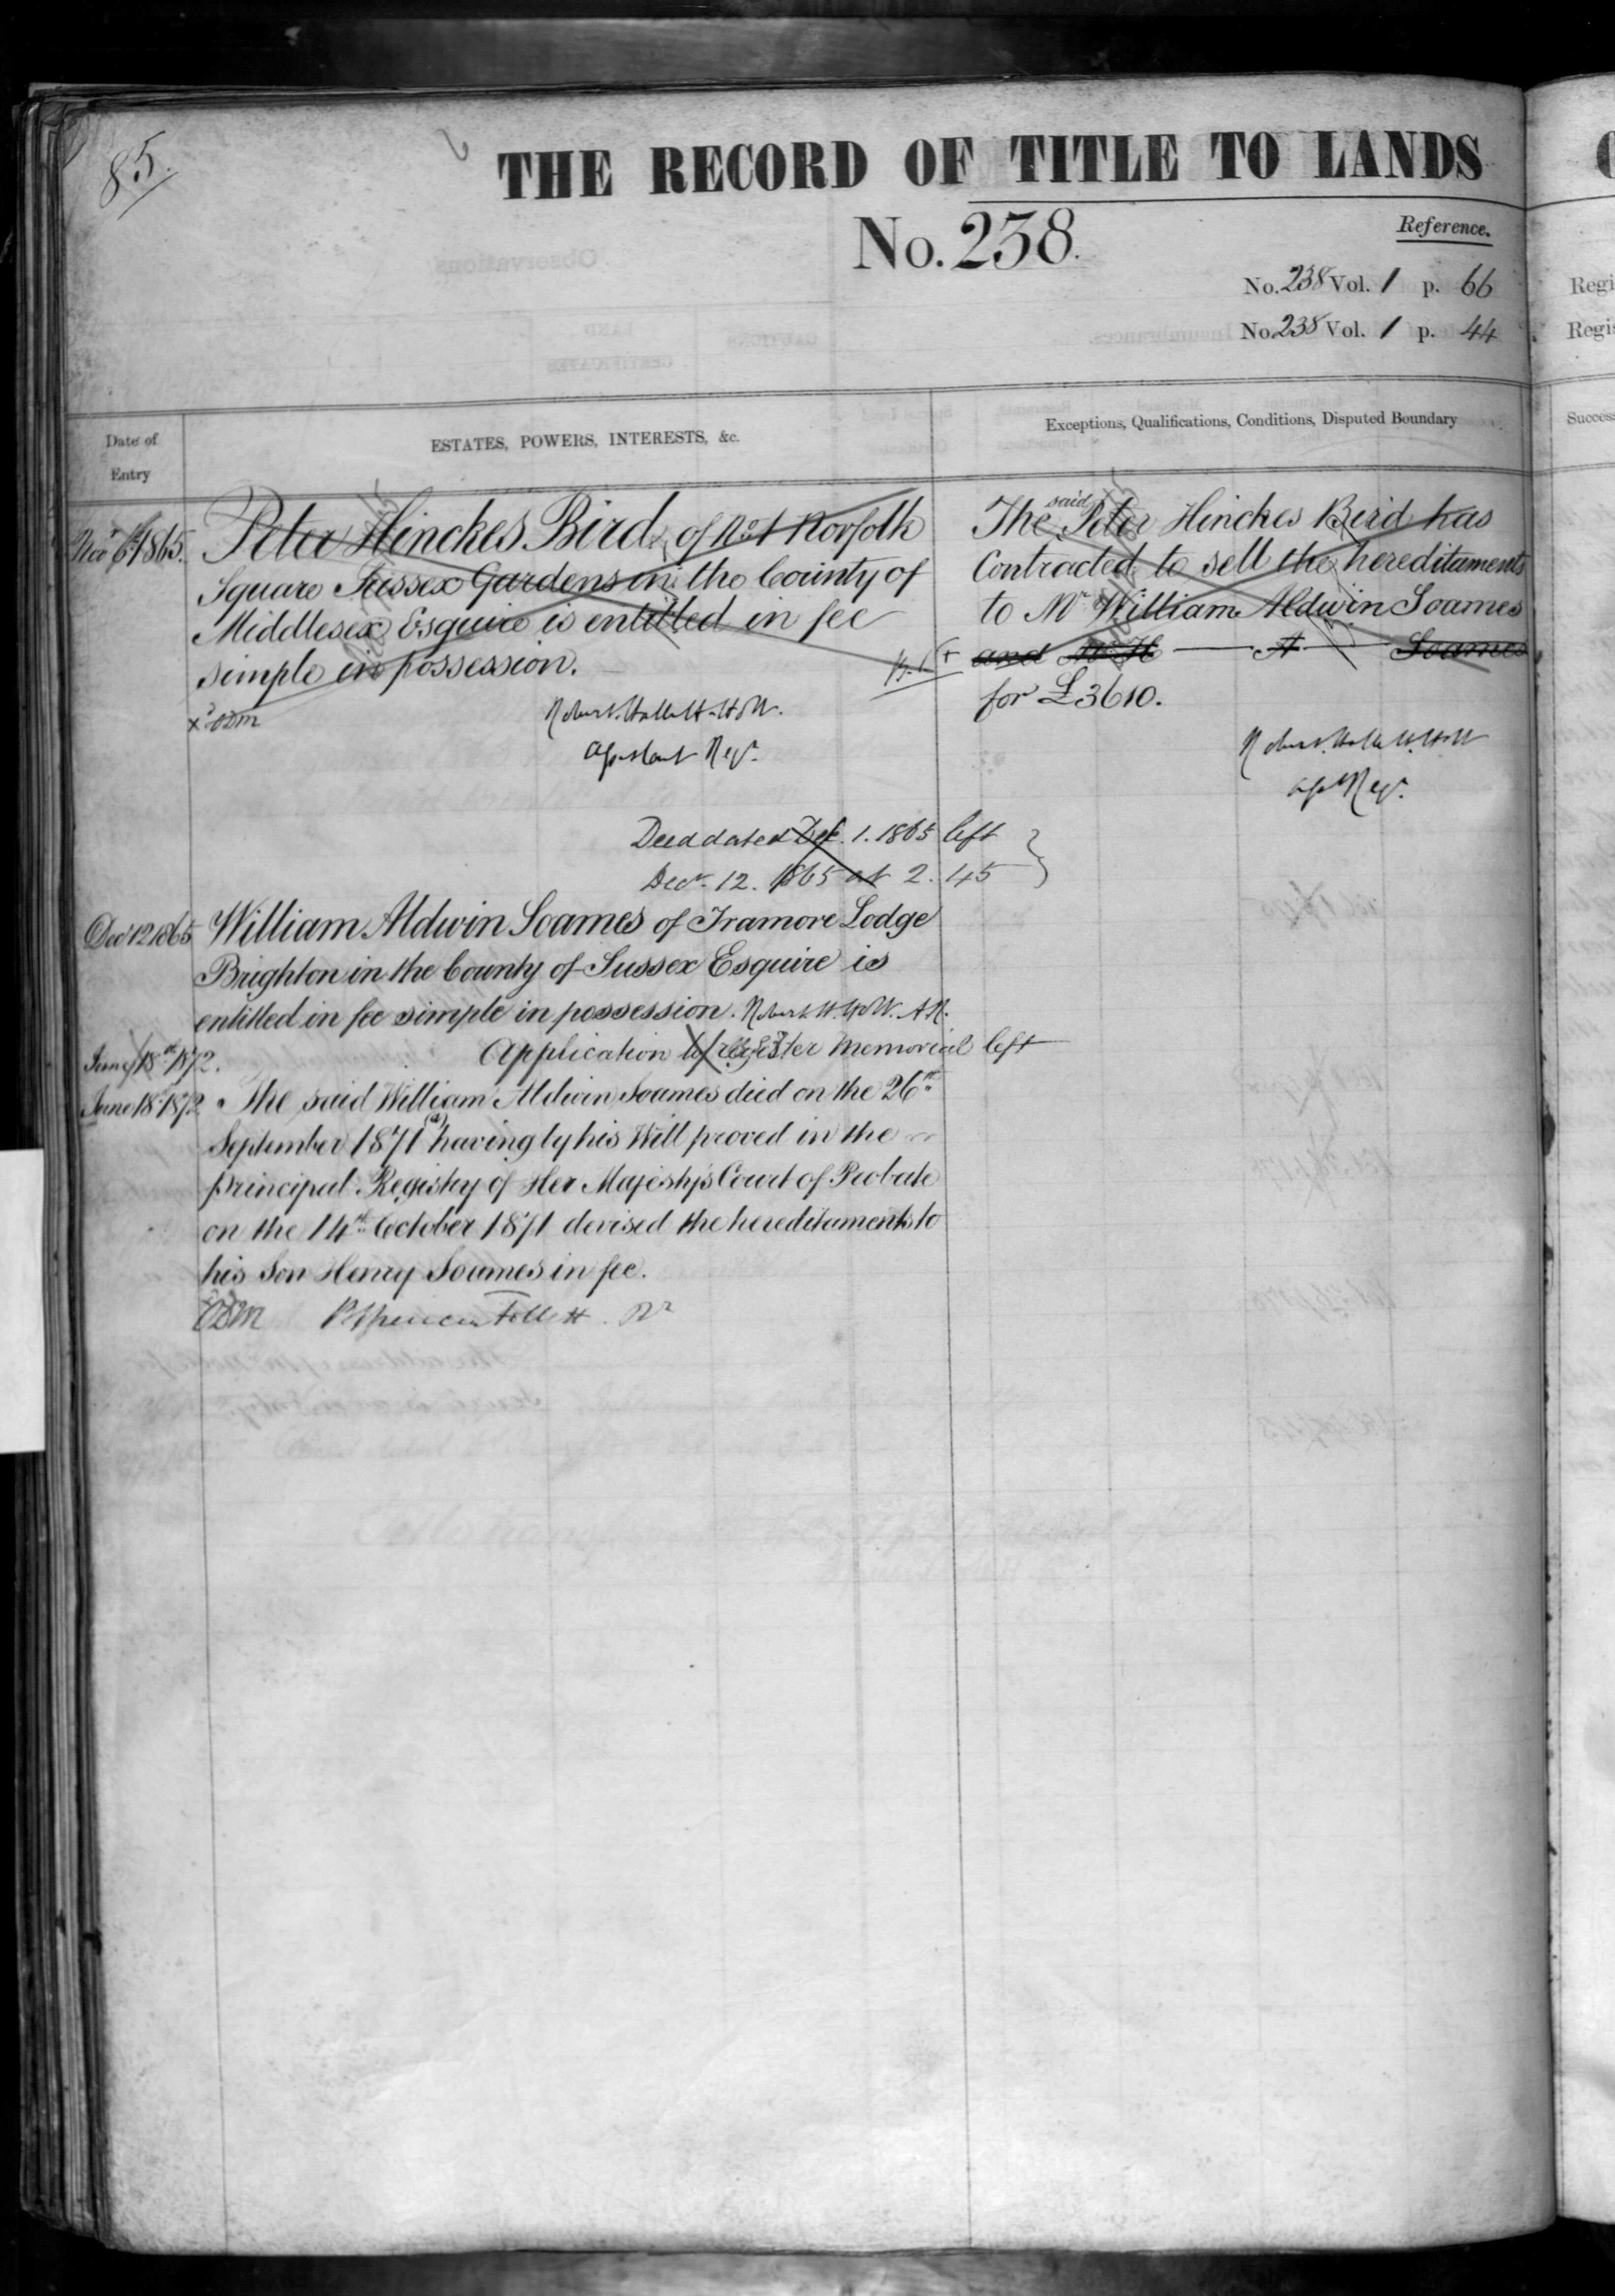 85.
THE RECORD OF TITLE TO LANDS
No. 238.
Reference.
No. 238 Vol. 1 p. 66
No. 238 Vol. 1 p. 44
Date of
Entry
ESTATES, POWERS, INTERESTS, &c.
Exceptions, Qualifications, Conditions, Disputed Boundary
6th 1865.
Peter Hinckes Bird, of No 1 Norfolk
Square Sussex Gardens in the County of
Middlesex Esquire is entitled in fee
simple in possession.
Robert Hallett Holt.
Assistant Regr.
The said Peter Hinckes Bird has
Contracted to sell the hereditaments
to Mr William Aldwin Soames
and Mr H A Soames
for £3610.
Robert Hallett Holt
Asst Regr.
Deed dated Dec. 1. 1865 left
Decr. 12. 1865 at 2.45
Decr 12 1865
William Aldwin Soames of Tramore Lodge
Brighton in the County of Sussex Esquire is
entitled in fee simple in possession. Robert H. Holt. A.R.
June 18th 1872.
Application to register Memorial left
June 18 1872
The said William Aldwin Soames died on the 26th
September 1871 (a) having by his Will proved in the
principal Registry of Her Majesty's Court of Probate
on the 14th October 1871 devised the hereditaments to
his Son Henry Soames in fee.
B Spencer Follett. Rr
Regi
Regis
Success